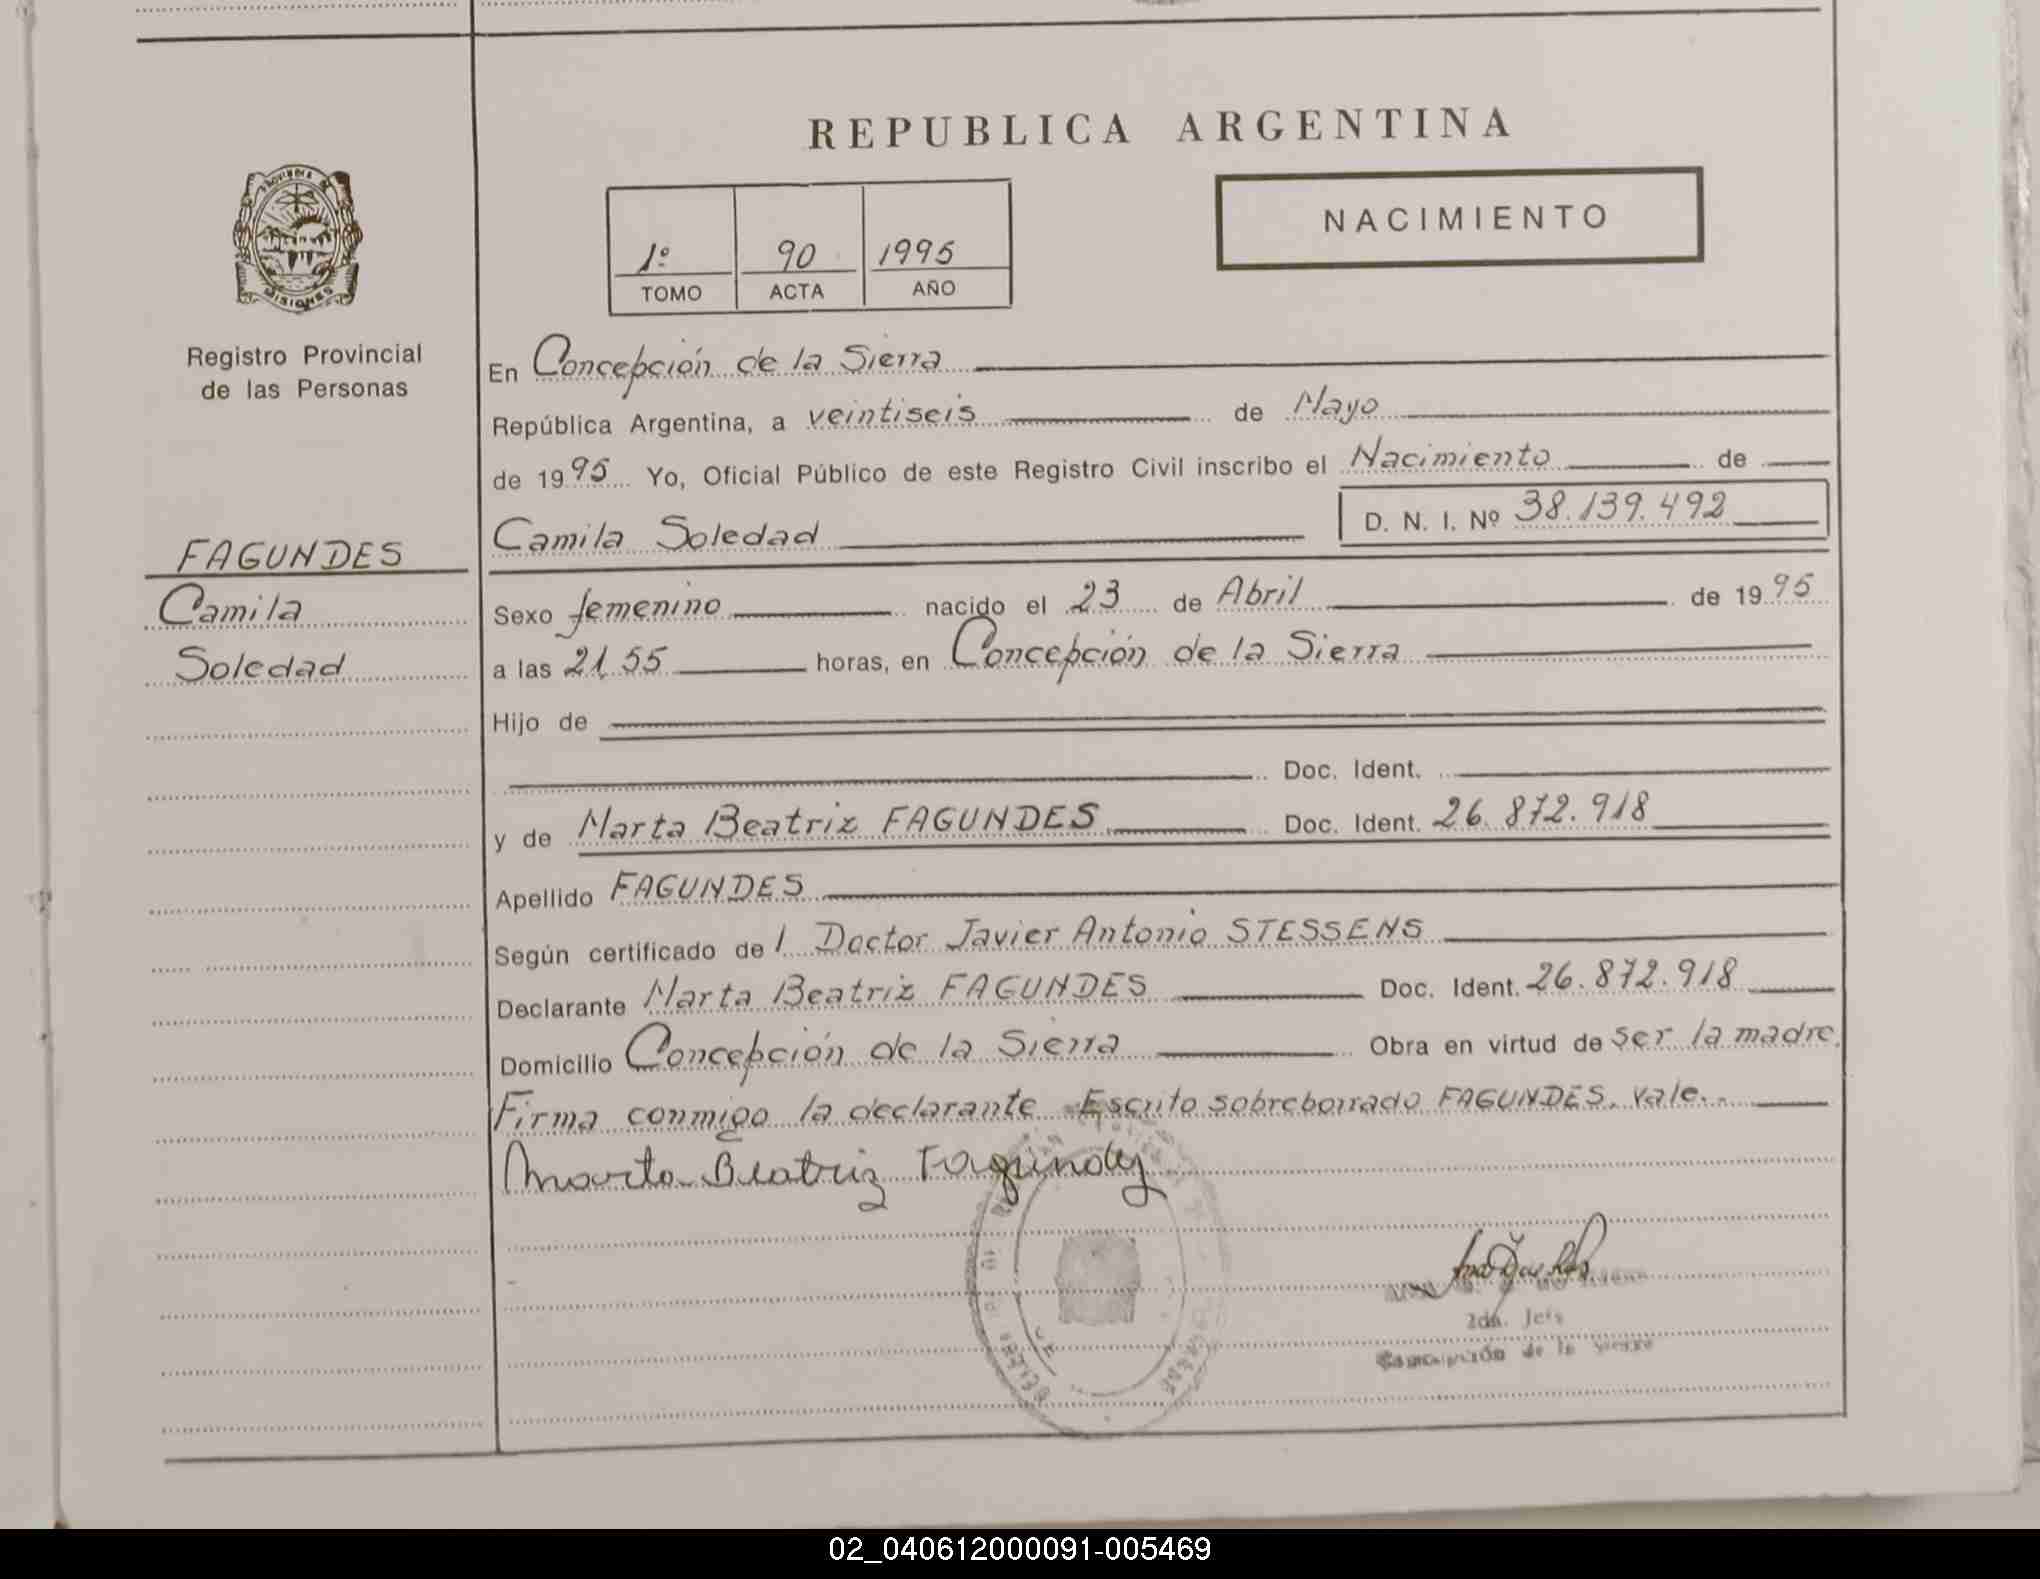 REPUBLICA ARGENTINA
PROVINCIA DE
MISIONES
Registro Provincial
de las Personas
1º 90 1995
TOMO ACTA AÑO
NACIMIENTO
En Concepción de la Sierra
República Argentina, a veintiseis de Mayo
de 1995 Yo, Oficial Público de este Registro Civil inscribo el Nacimiento de
Camila Soledad D. N. I. Nº 38.139.492
FAGUNDES
Camila
Soledad
Sexo femenino nacido el 23 de Abril de 1995
a las 21,55 horas, en Concepción de la Sierra
Hijo de
Doc. Ident.
y de Marta Beatriz FAGUNDES Doc. Ident. 26.872.918
Apellido FAGUNDES
Según certificado del Doctor Javier Antonio STESSENS
Declarante Marta Beatriz FAGUNDES Doc. Ident. 26.872.918
Domicilio Concepción de la Sierra Obra en virtud de ser la madre.
Firma conmigo la declarante Escrito sobreborrado FAGUNDES. vale..
Marta Beatriz Fagundes
2da. Jefa
Concepción de la Sierra
02_040612000091-005469